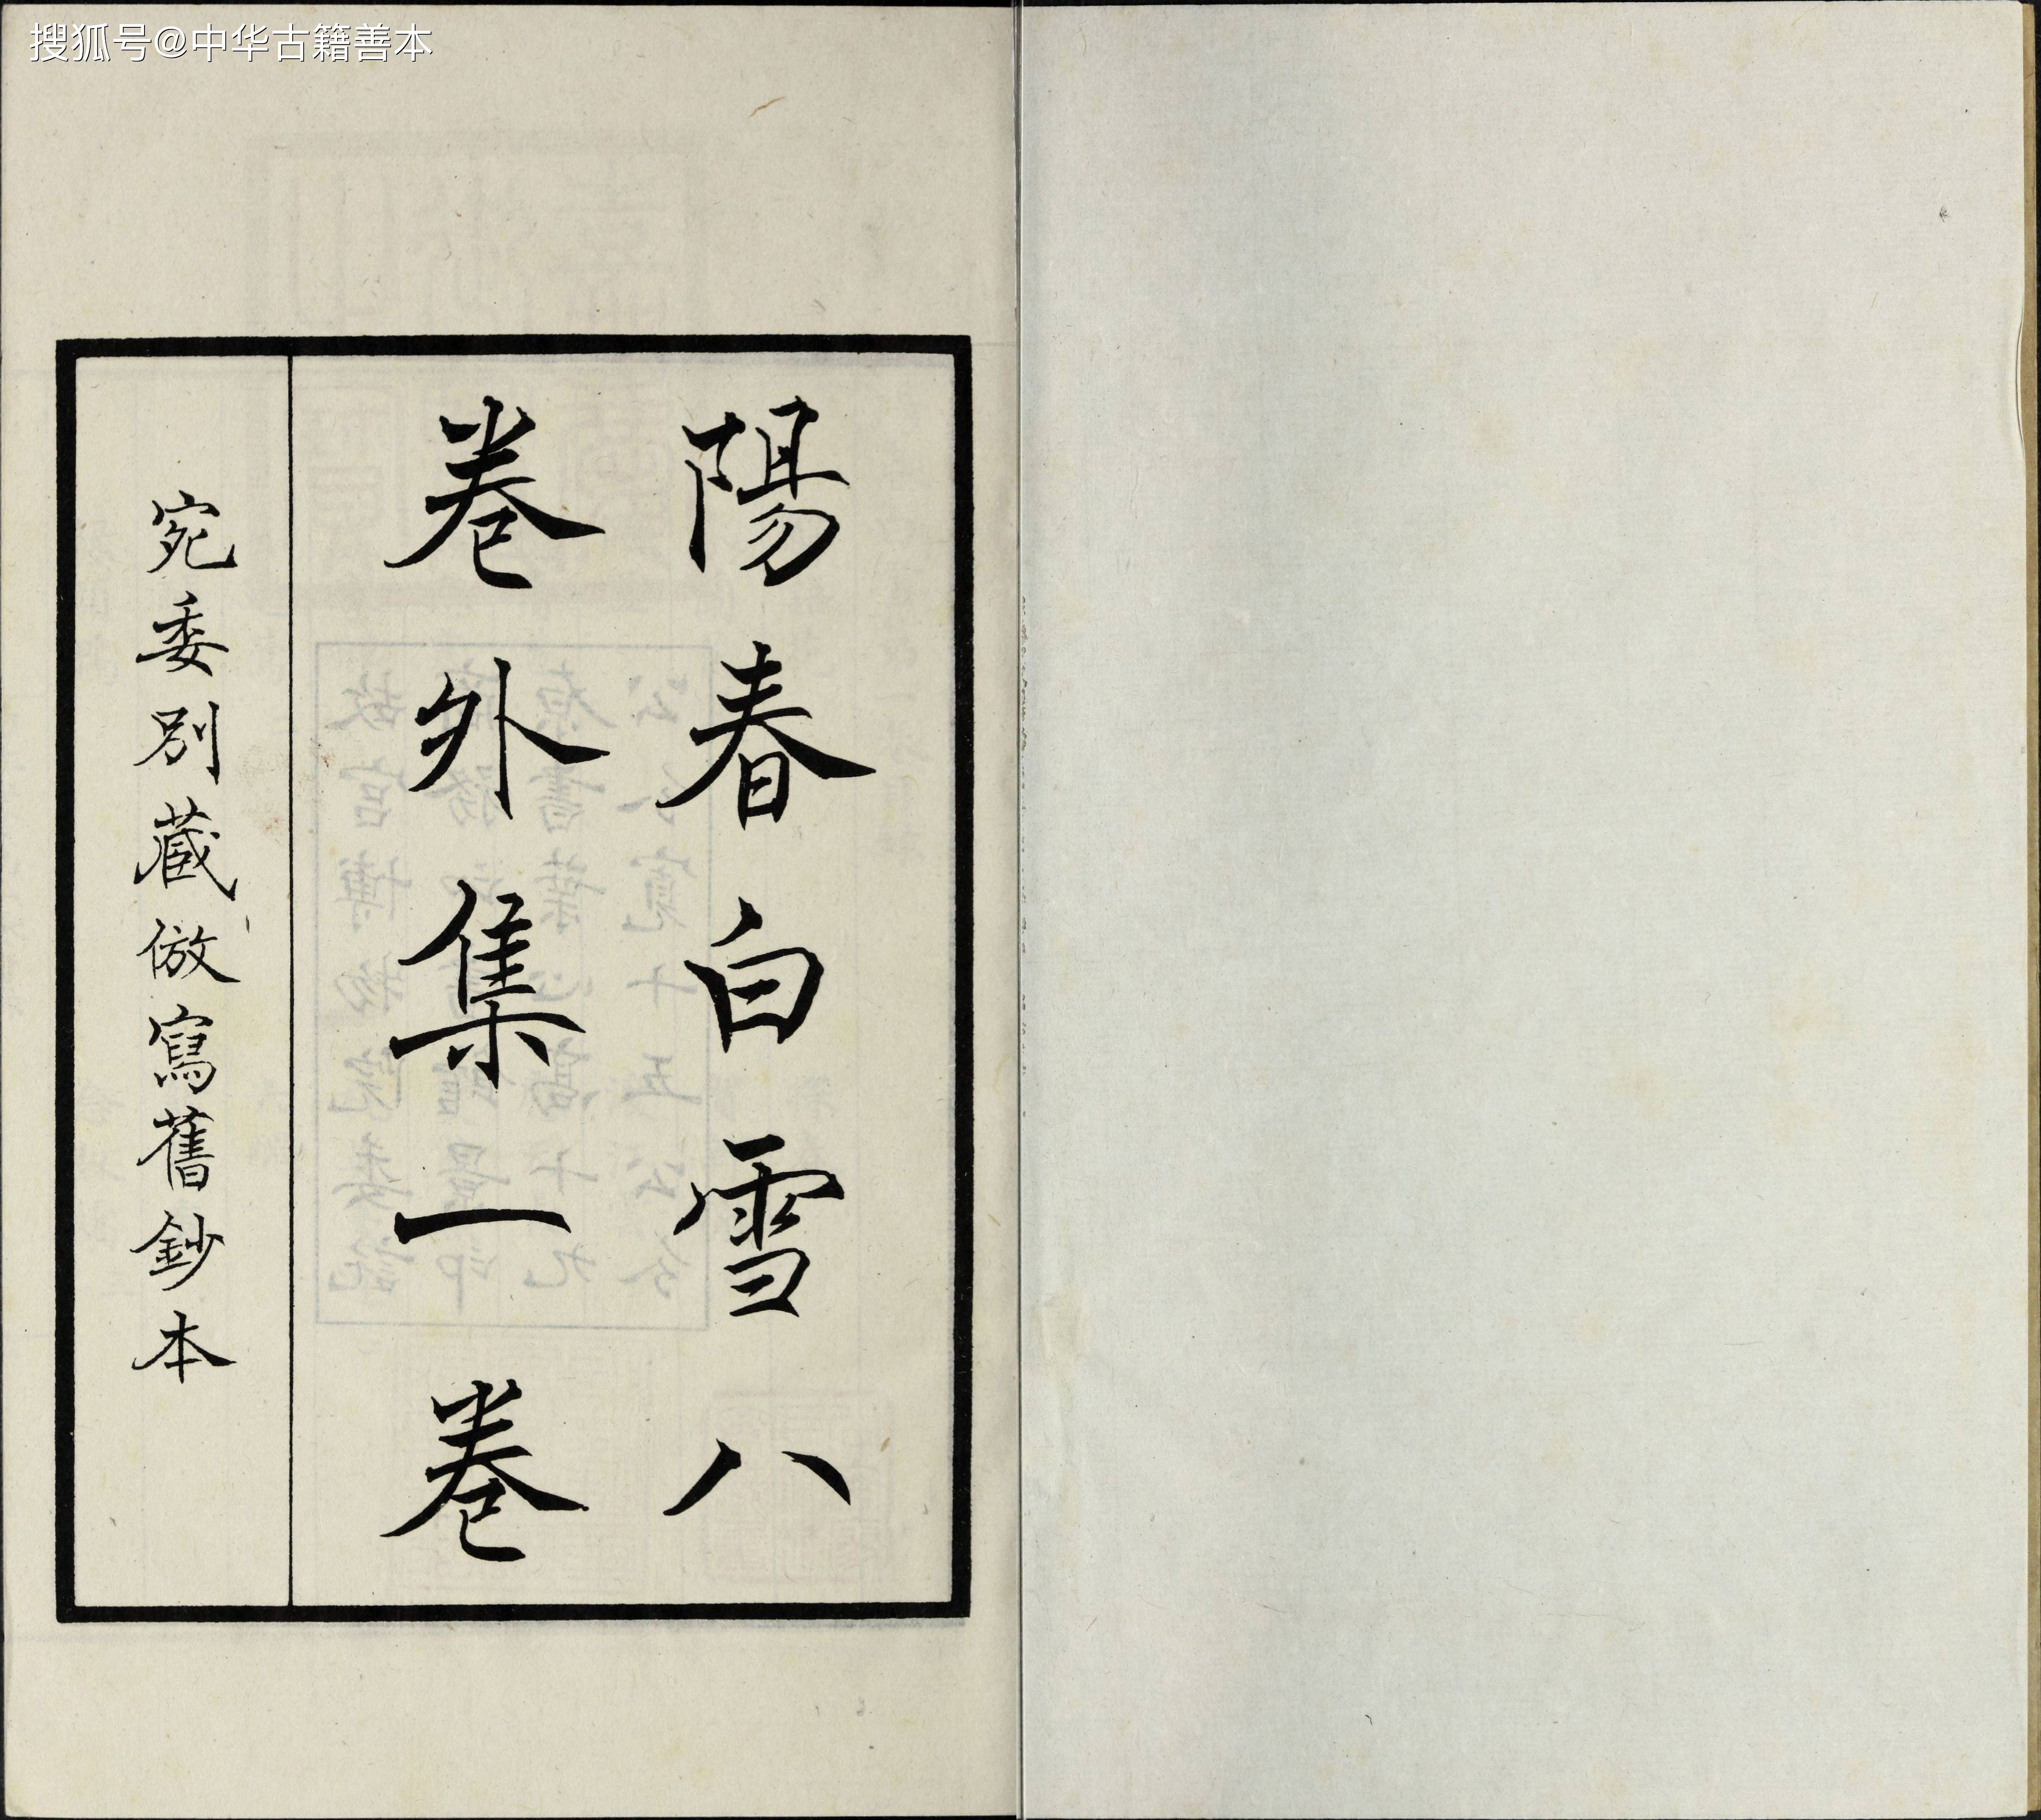 搜狐号@中华古籍善本
陽春白雪八
卷外集一卷
宛委別藏倣寫舊鈔本